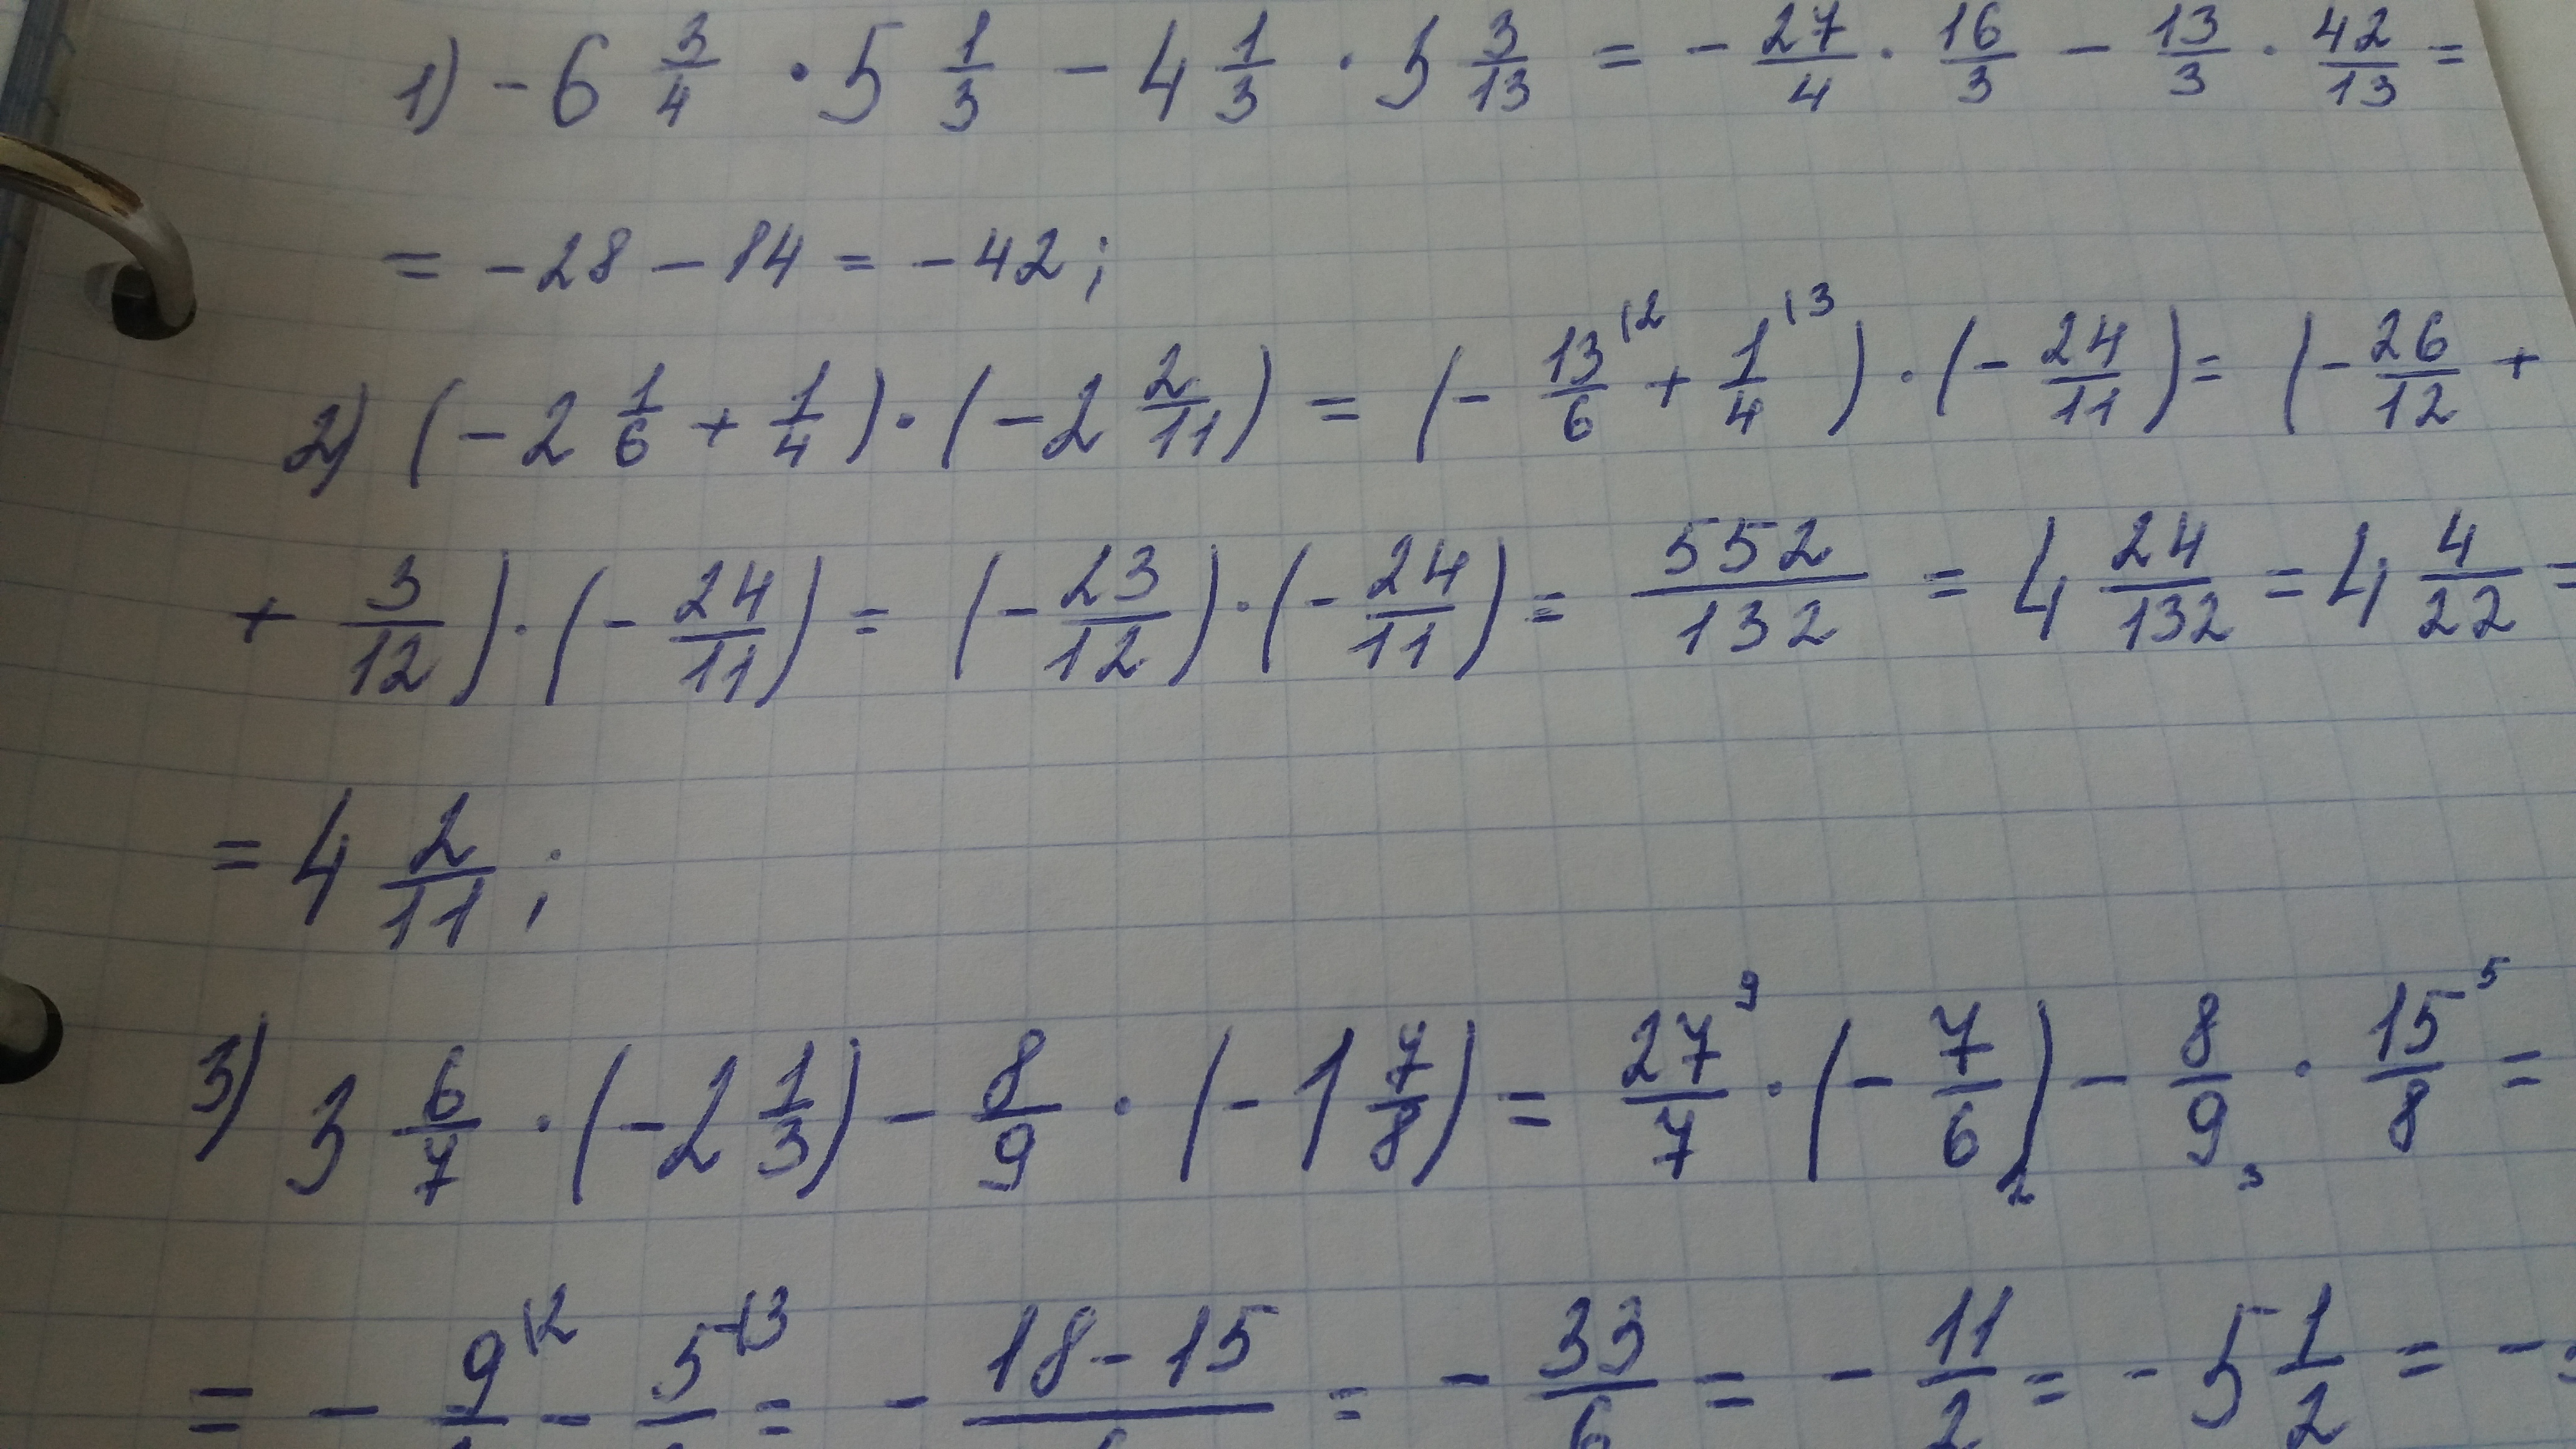 1) - 6 3/4 · 5 1/3 - 4 1/3 · 3 3/13 = - 27/4 · 16/3 - 13/3 · 42/13 =
= - 28 - 14 = - 42;
2) (- 2 1/6 + 1/4) · (- 2 2/11) = (- 13/6 \2 + 1/4 \3) · (- 24/11) = (- 26/12 +
+ 3/12) · (- 24/11) = (- 23/12) · (- 24/11) = 552/132 = 4 24/132 = 4 4/22 =
= 4 2/11;
3) 3 6/7 · (- 2 1/3) - 8/9 · (- 1 7/8) = 27/7 9 · (- 7/6) 2 - 8/9 3 · 15/8 5 =
= - 9 \2 - 5 \3 = - 18 - 15 = - 33/6 = - 11/2 = - 5 1/2 = -